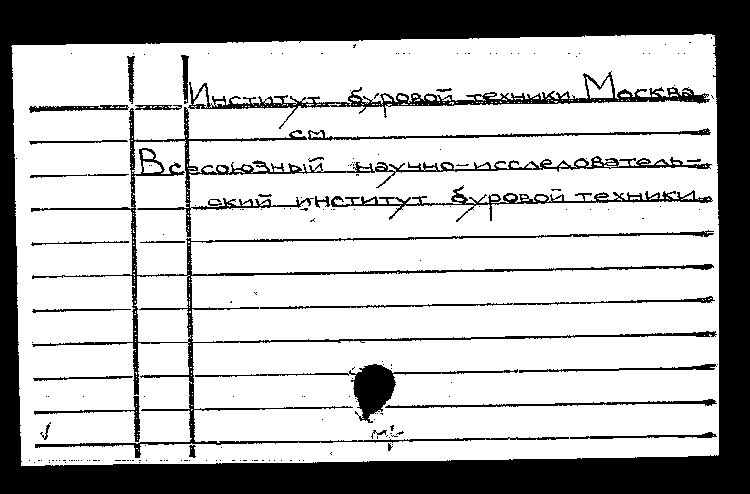 Институт буровой техники. Москва.
см.
Всесоюзный научно-исследователь-
ский институт буровой техники.